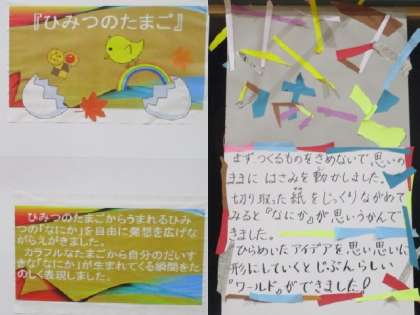 『ひみつのたまご』
ひみつのたまごからうまれるひみ
つの「なにか」を自由に発想を広げな
がらえがきました。
カラフルなたまごから自分のだいす
きな「なにか」が生まれてくる瞬間をた
のしく表現しました。
まずつくるものをきめないで思いの
ままにはさみを動かしました。
切り取った紙をじっくりながめて
みると『なにか』が思いうかんで
きました。
ひらめいたアイデアを思い思いに
形にしていくとじぶんらしい
"ワールド"ができました!